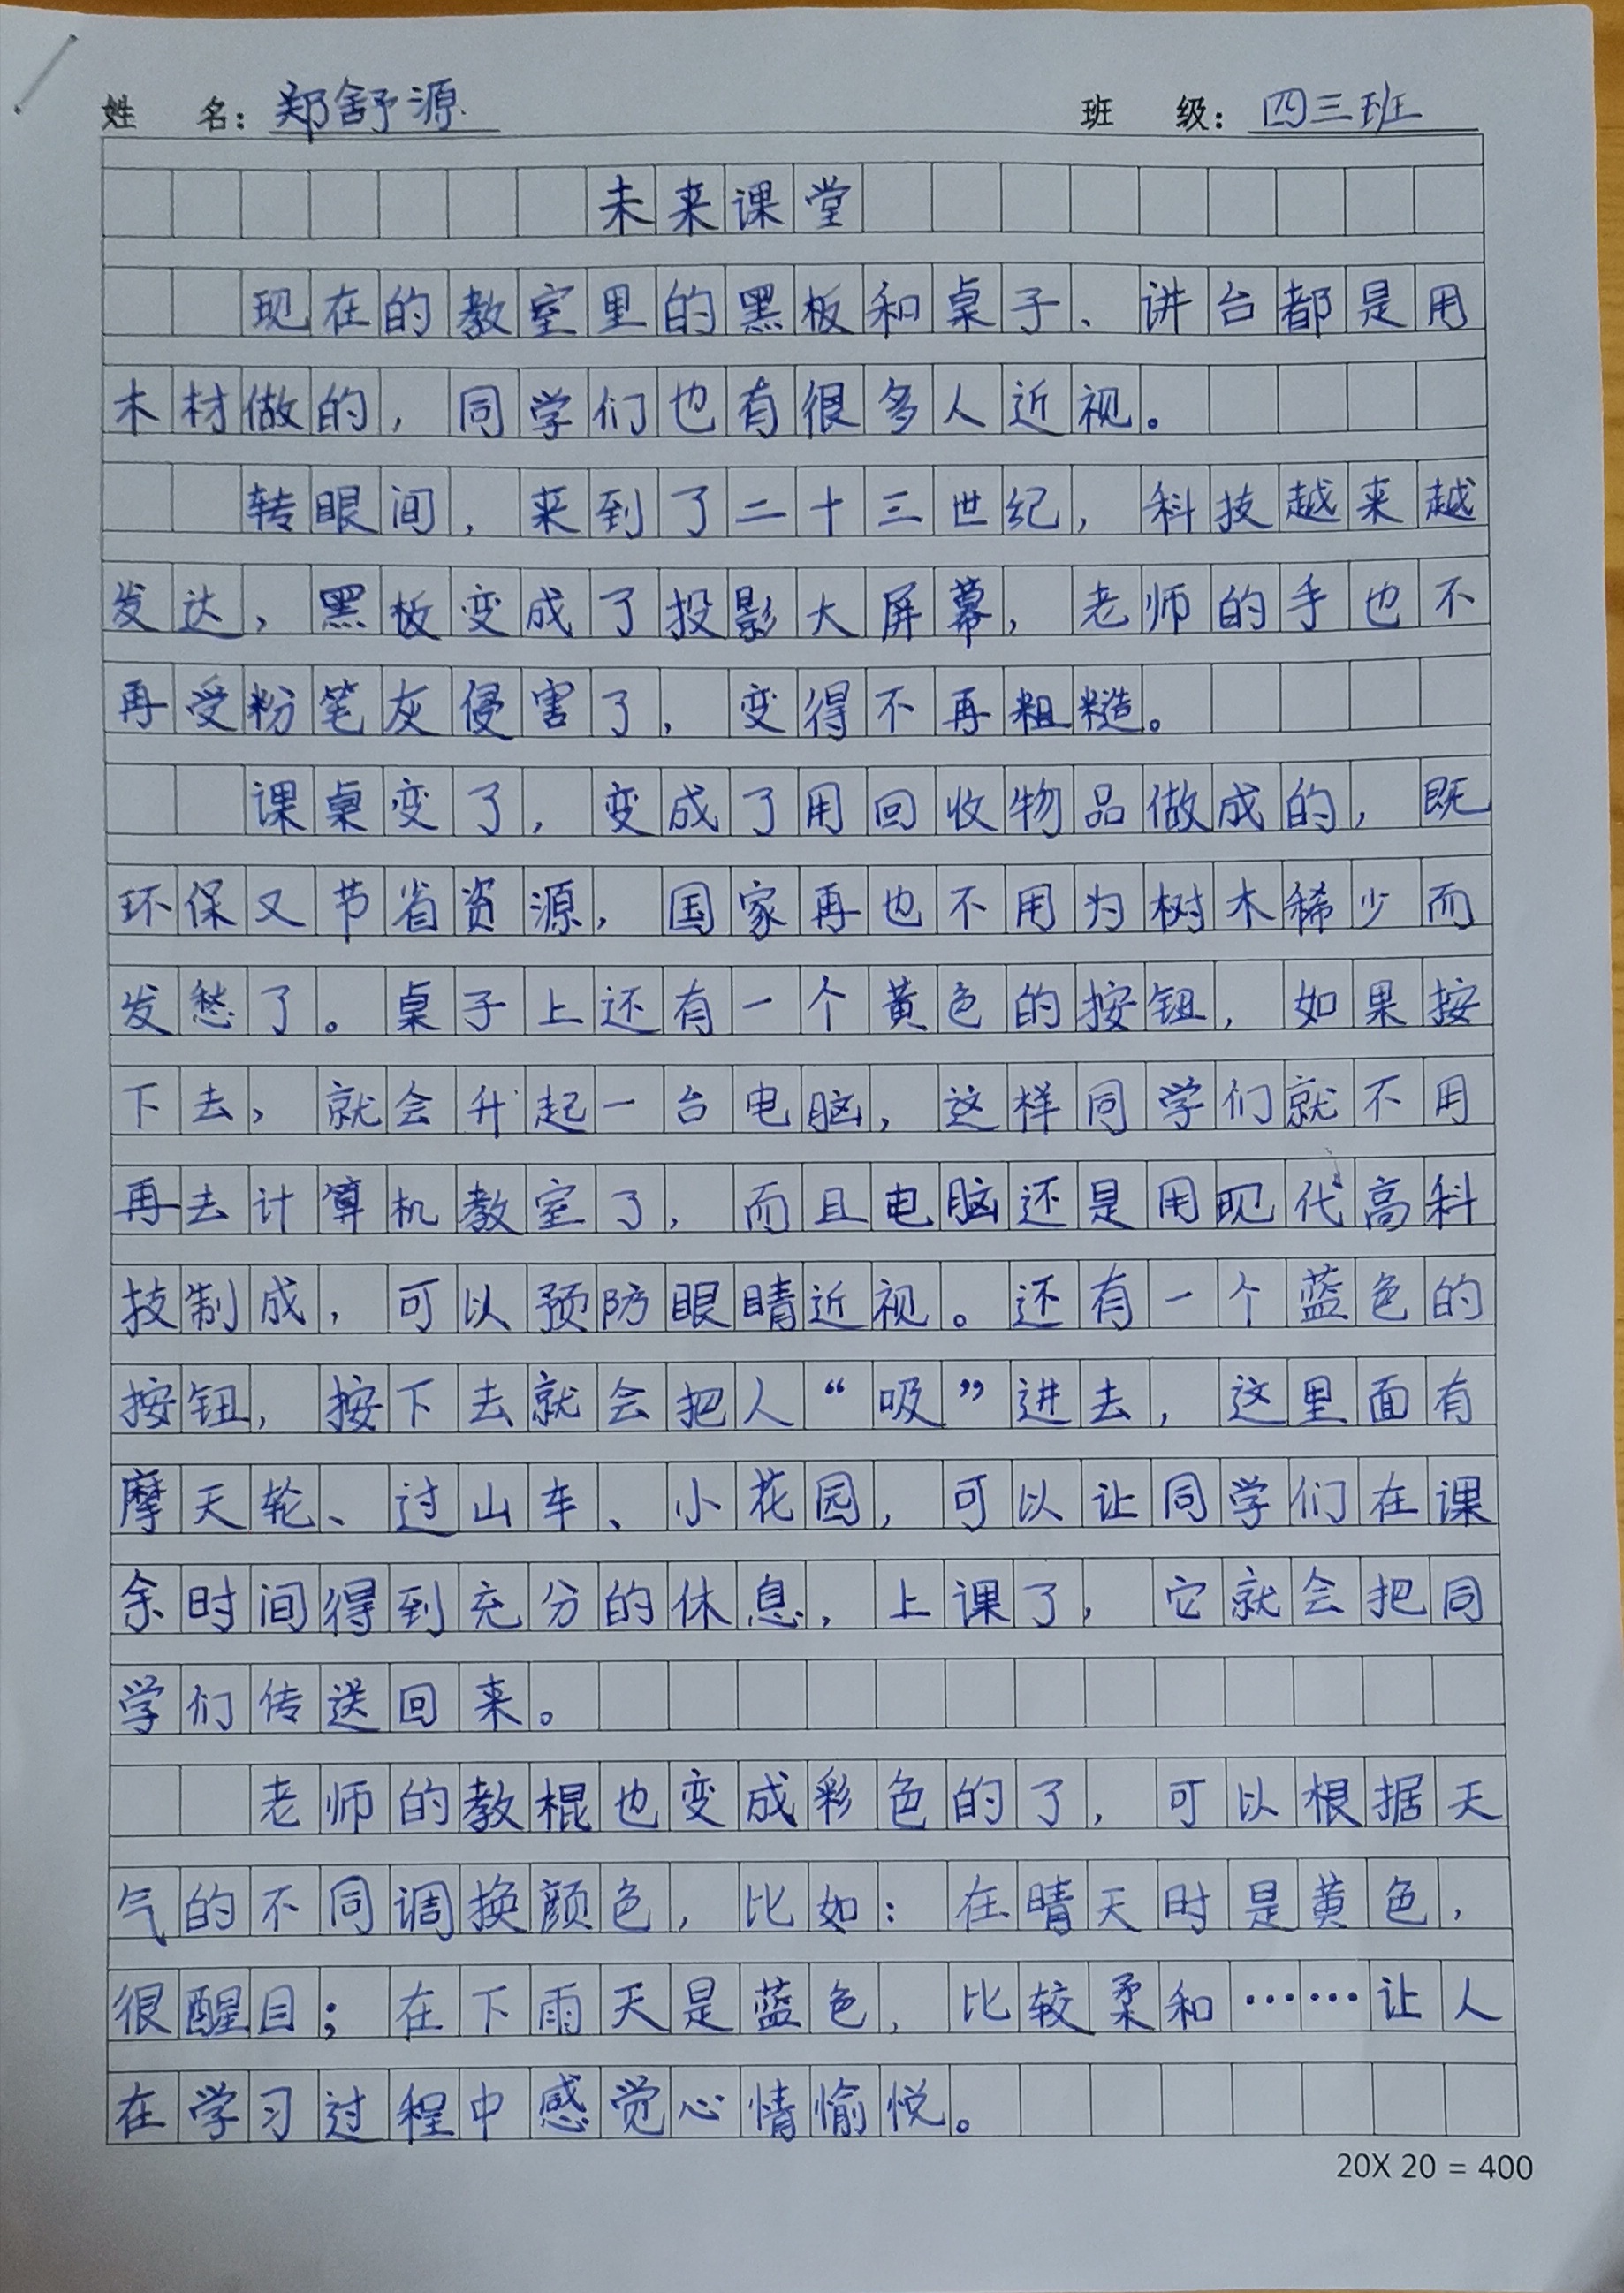 姓 名：郑舒源 班 级：四三班
未来课堂
现在的教室里的黑板和桌子、讲台都是用
木材做的，同学们也有很多人近视。
转眼间，来到了二十三世纪，科技越来越
发达，黑板变成了投影大屏幕，老师的手也不
再受粉笔灰侵害了，变得不再粗糙。
课桌变了，变成了用回收物品做成的，既
环保又节省资源，国家再也不用为树木稀少而
发愁了。桌子上还有一个黄色的按钮，如果按
下去，就会升起一台电脑，这样同学们就不用
再去计算机教室了，而且电脑还是用现代高科
技制成，可以预防眼睛近视。还有一个蓝色的
按钮，按下去就会把人“吸”进去，这里面有
摩天轮、过山车、小花园，可以让同学们在课
余时间得到充分的休息，上课了，它就会把同
学们传送回来。
老师的教棍也变成彩色的了，可以根据天
气的不同调换颜色，比如：在晴天时是黄色，
很醒目；在下雨天是蓝色，比较柔和……让人
在学习过程中感觉心情愉悦。
20X 20 = 400